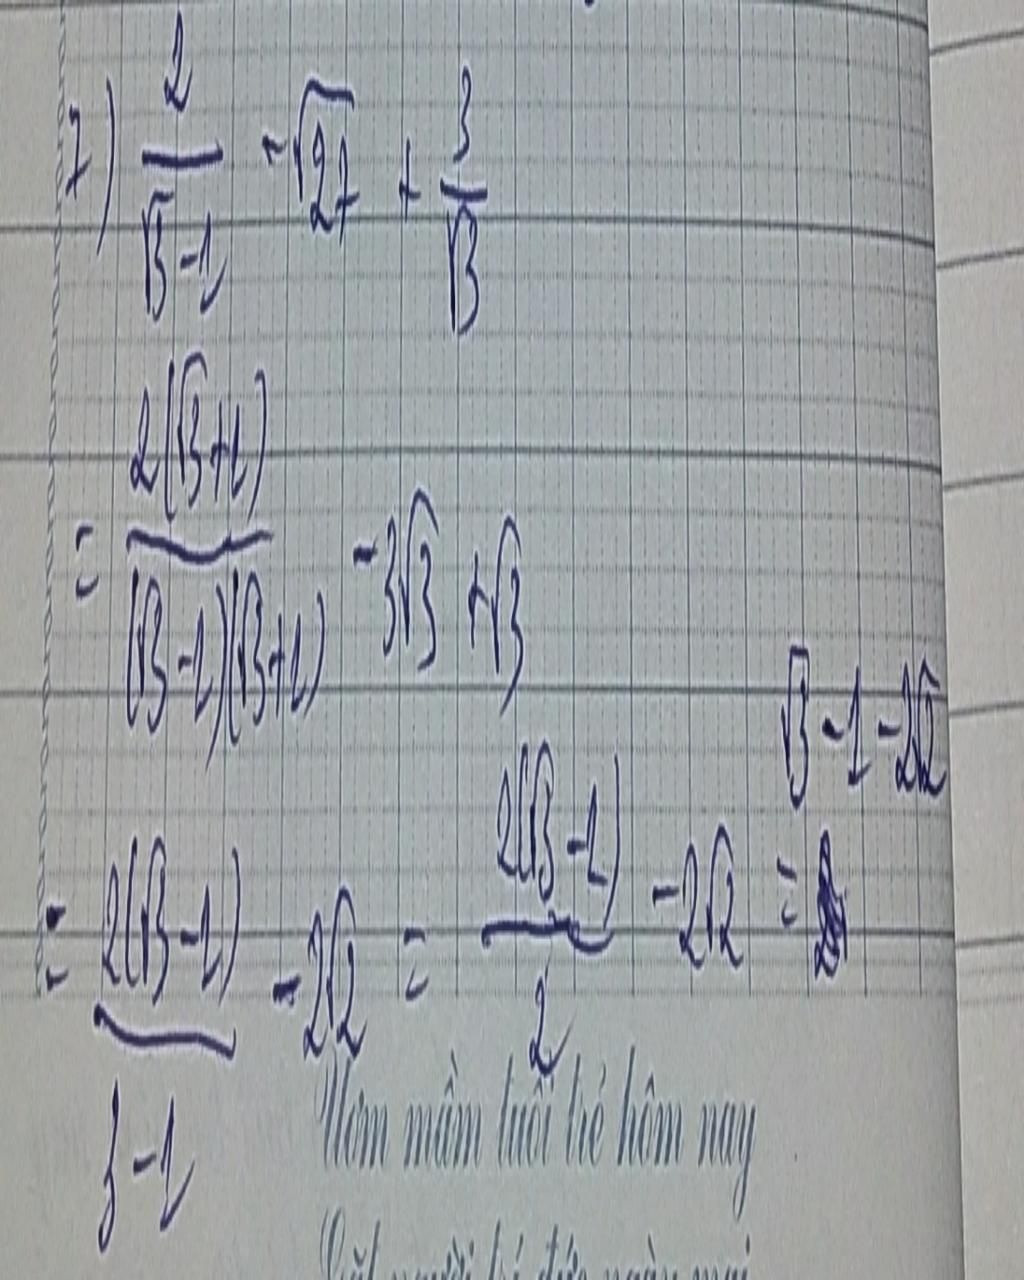 7) 2/(√3-1) - √27 + 3/√3
= 2(√3+1)/((√3-1)(√3+1)) - 3√3 + √3
= 2(√3-1)/(3-1) - 2√2 = 2(√3-1)/2 - 2√2 = √3-1-2√2
Ươm mầm tuổi trẻ hôm nay